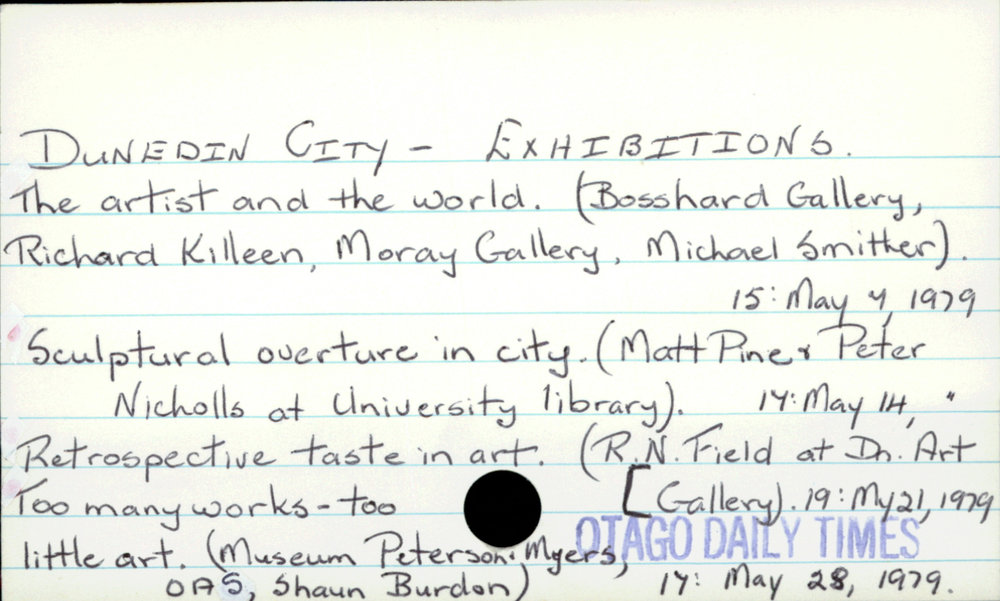 DUNEDIN CITY - EXHIBITIONS.
The artist and the world. (Bosshard Gallery,
Richard Killeen, Moray Gallery, Michael Smither).
15: May 4, 1979
Sculptural overture in city. (Matt Pine & Peter
Nicholls at University library). 14: May 14, "
Retrospective taste in art. (R.N. Field at Dn. Art
Too many works - too [Gallery). 19: My 21, 1979
OTAGO DAILY TIMES
little art. (Museum Peterson: Myers,
OAS, Shaun Burdon) 14: May 28, 1979.